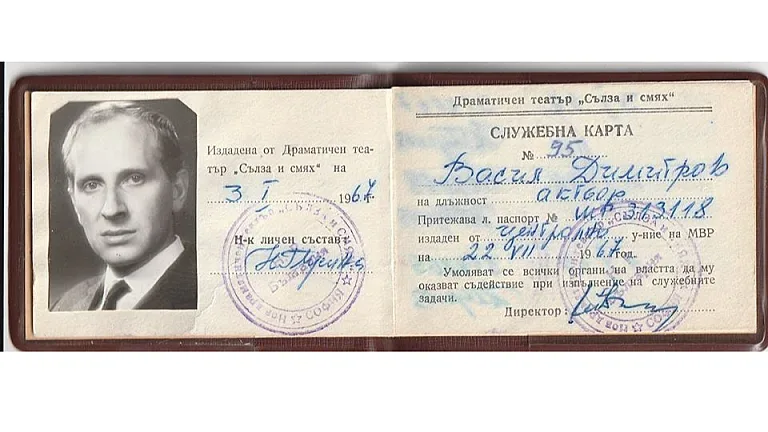 Издадена от Драматичен теа-
тър „Сълза и смях“ на
3 I 1967 г.
Н-к личен състав:
Драматичен театър „Сълза и смях“
СЛУЖЕБНА КАРТА
№ 95
Васил Димитров
на длъжност актьор
Притежава л. паспорт № 313118
издаден от у-ние на МВР
на 22 VII 1967 год.
Умоляват се всички органи на властта да му
оказват съдействие при изпълнение на служебните
задачи.
Директор: